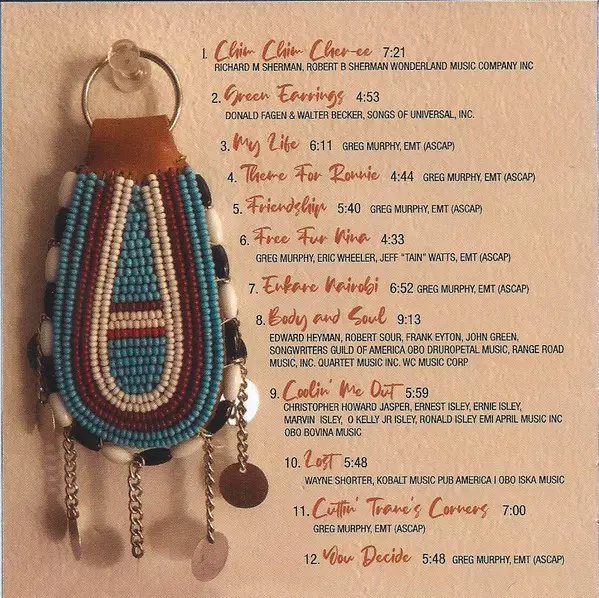 1. Chim Chim Cher-ee 7:21
RICHARD M SHERMAN, ROBERT B SHERMAN WONDERLAND MUSIC COMPANY INC
2. Green Earrings 4:53
DONALD FAGEN & WALTER BECKER, SONGS OF UNIVERSAL, INC.
3. My Life 6:11 GREG MURPHY, EMT (ASCAP)
4. Theme For Ronnie 4:44 GREG MURPHY, EMT (ASCAP)
5. Friendship 5:40 GREG MURPHY, EMT (ASCAP)
6. Free Fur Nina 4:33
GREG MURPHY, ERIC WHEELER, JEFF "TAIN" WATTS, EMT (ASCAP)
7. Enkare Nairobi 6:52 GREG MURPHY, EMT (ASCAP)
8. Body and Soul 9:13
EDWARD HEYMAN, ROBERT SOUR, FRANK EYTON, JOHN GREEN,
SONGWRITERS GUILD OF AMERICA OBO DRUROPETAL MUSIC, RANGE ROAD
MUSIC, INC. QUARTET MUSIC INC. WC MUSIC CORP
9. Coolin' Me Out 5:59
CHRISTOPHER HOWARD JASPER, ERNEST ISLEY, ERNIE ISLEY,
MARVIN ISLEY, O KELLY JR ISLEY, RONALD ISLEY EMI APRIL MUSIC INC
OBO BOVINA MUSIC
10. Lost 5:48
WAYNE SHORTER, KOBALT MUSIC PUB AMERICA I OBO ISKA MUSIC
11. Cuttin' Trane's Corners 7:00
GREG MURPHY, EMT (ASCAP)
12. You Decide 5:48 GREG MURPHY, EMT (ASCAP)